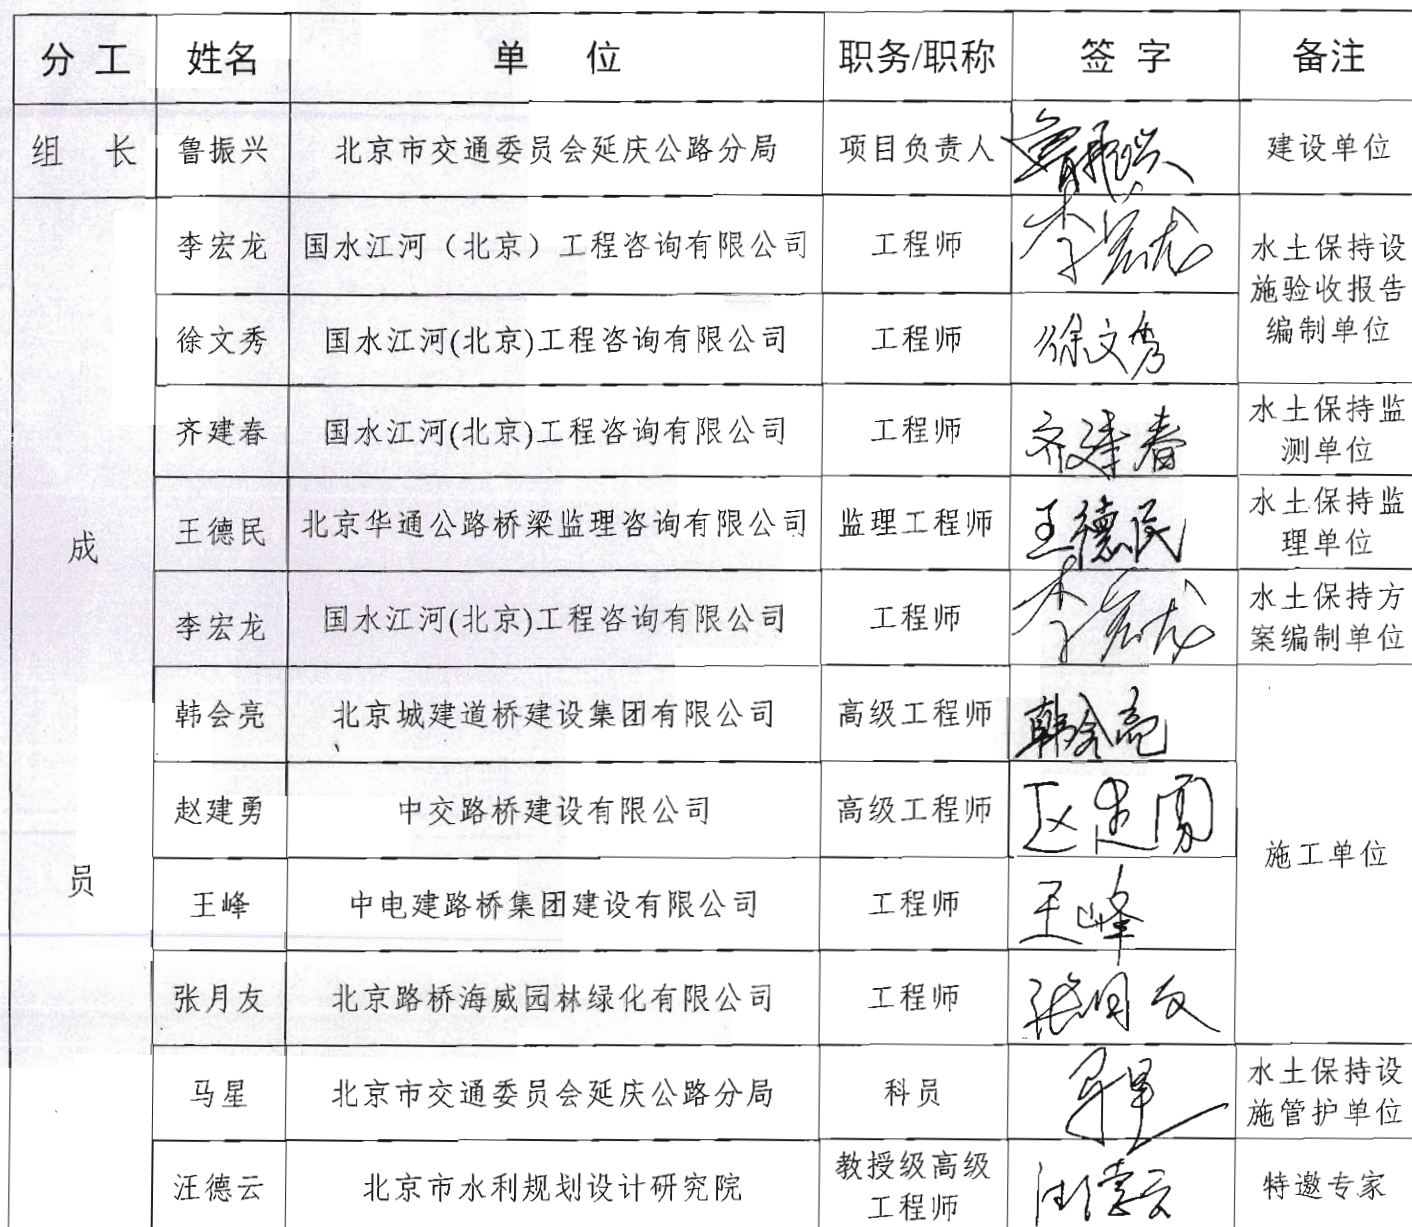 分 工 姓名 单 位 职务/职称 签 字 备注
组 长 鲁振兴 北京市交通委员会延庆公路分局 项目负责人 鲁振兴 建设单位
成
员
李宏龙 国水江河（北京）工程咨询有限公司 工程师 李宏龙
水土保持设
施验收报告
编制单位
徐文秀 国水江河(北京)工程咨询有限公司 工程师 徐文秀
齐建春 国水江河(北京)工程咨询有限公司 工程师 齐建春
水土保持监
测单位
王德民 北京华通公路桥梁监理咨询有限公司 监理工程师 王德民
水土保持监
理单位
李宏龙 国水江河(北京)工程咨询有限公司 工程师 李宏龙
水土保持方
案编制单位
韩会亮 北京城建道桥建设集团有限公司 高级工程师 韩会亮
赵建勇 中交路桥建设有限公司 高级工程师 赵建勇
施工单位
王峰 中电建路桥集团建设有限公司 工程师 王峰
张月友 北京路桥海威园林绿化有限公司 工程师 张月友
马星 北京市交通委员会延庆公路分局 科员 马星
水土保持设
施管护单位
汪德云 北京市水利规划设计研究院
教授级高级
工程师
汪德云 特邀专家